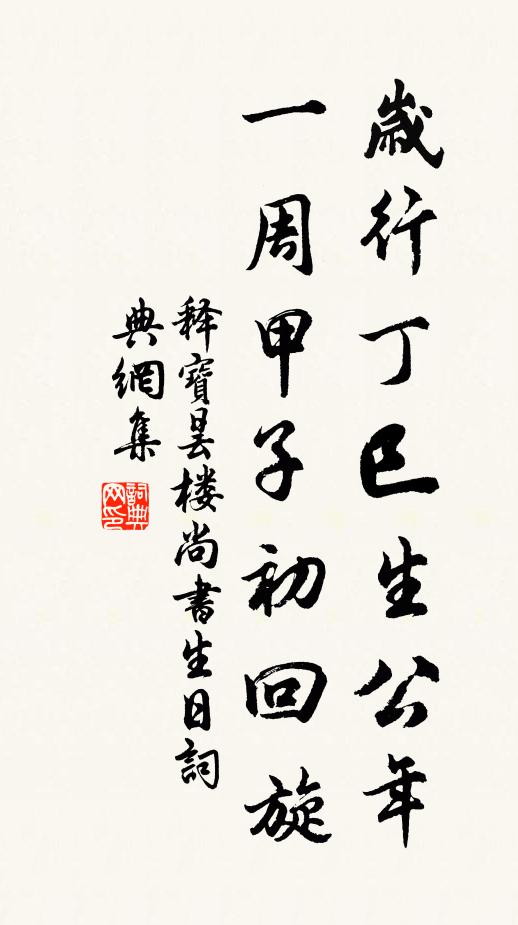 歲行丁巳生公年
一周甲子初回旋
释寶昙楼尚書生日詞
典網集
詞典网印